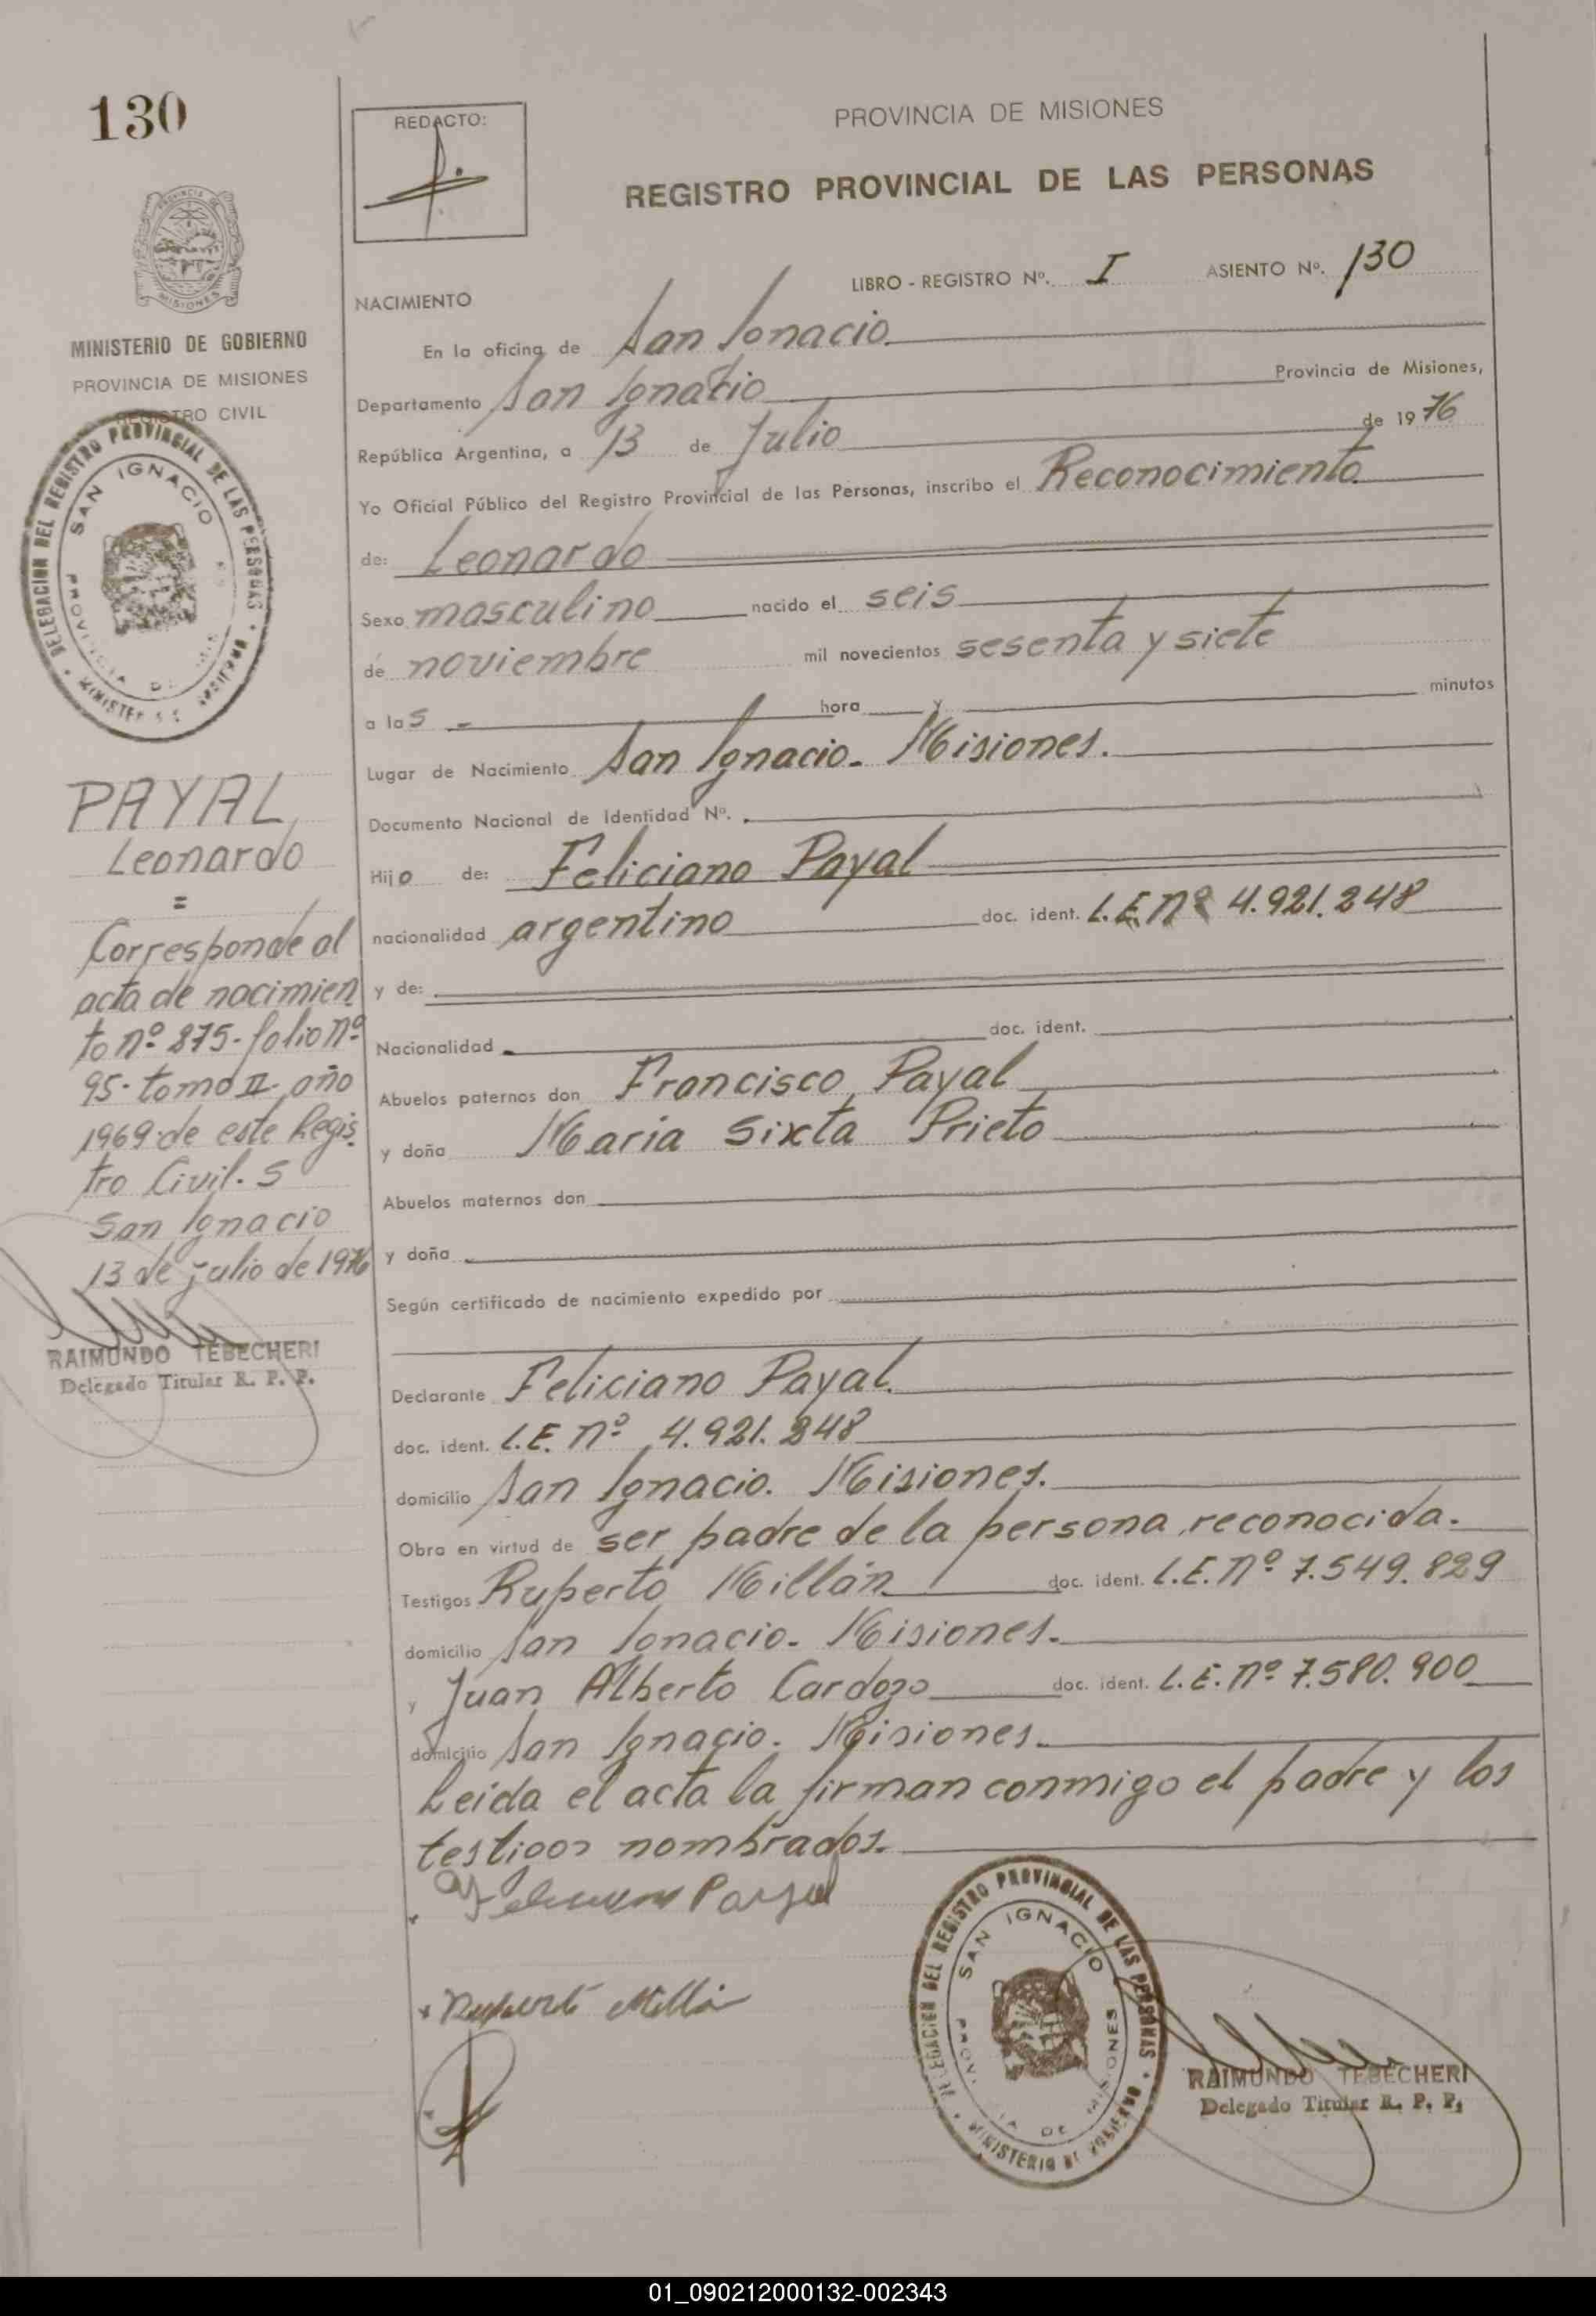 130
REDACTO:
PROVINCIA DE MISIONES
REGISTRO PROVINCIAL DE LAS PERSONAS
LIBRO - REGISTRO Nº. I ASIENTO Nº. 130
MINISTERIO DE GOBIERNO
PROVINCIA DE MISIONES
REGISTRO CIVIL
DELEGACION DEL REGISTRO PROVINCIAL DE LAS PERSONAS
SAN IGNACIO
PAYAL
Leonardo
=
Corresponde al
acta de nacimien
to nº 875- folio nº
95- tomo II- año
1969- de este Regis
tro Civil. S
San Ignacio
13 de julio de 1976
RAIMUNDO TEBECHERI
Delegado Titular R. P. P.
NACIMIENTO
En la oficina de San Ignacio
Departamento San Ignacio Provincia de Misiones,
República Argentina, a 13 de Julio de 1976
Yo Oficial Público del Registro Provincial de las Personas, inscribo el Reconocimiento
de: Leonardo
Sexo masculino nacido el seis
de noviembre mil novecientos sesenta y siete
a las - hora y minutos
Lugar de Nacimiento San Ignacio- Misiones.
Documento Nacional de Identidad Nº.
Hijo de: Feliciano Payal
nacionalidad argentino doc. ident. L.E. nº 4.921.248
y de:
Nacionalidad doc. ident.
Abuelos paternos don Francisco Payal
y doña Maria Sixta Prieto
Abuelos maternos don
y doña
Según certificado de nacimiento expedido por
Declarante Feliciano Payal.
doc. ident. L.E. nº 4.921.248
domicilio San Ignacio. Misiones.
Obra en virtud de ser padre de la persona reconocida.
Testigos Ruperto Millán doc. ident. L.E. nº 7.549.829
domicilio San Ignacio- Misiones-
y Juan Alberto Cardozo doc. ident. L.E. nº 7.580.900
domicilio San Ignacio. Misiones.
Leida el acta la firman conmigo el padre y los
testigos nombrados.
Payal
Ruperto Millán
DELEGACION DEL REGISTRO PROVINCIAL DE LAS PERSONAS
MINISTERIO DE GOBIERNO
SAN IGNACIO
DE MISIONES
RAIMUNDO TEBECHERI
Delegado Titular R. P. P.
01_090212000132-002343